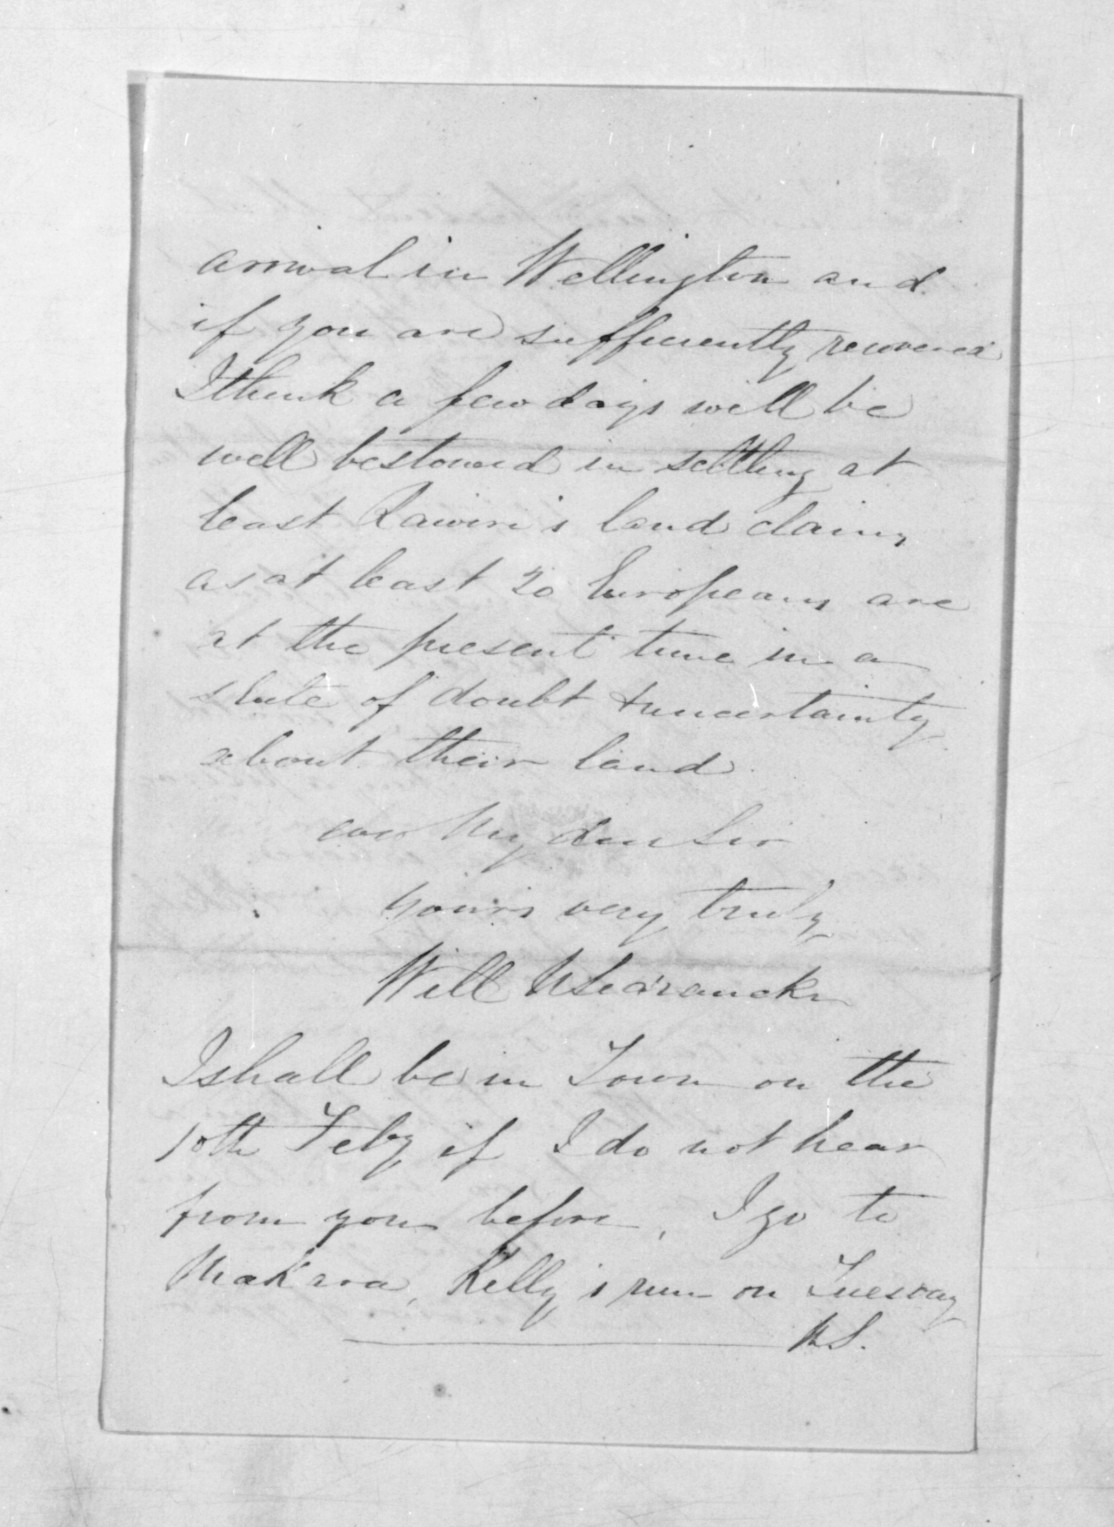 arrival in Wellington and
if you are sufficiently recovered
I think a few days will be
well bestowed in settling at
least Rawiri's land claims
as at least 20 Europeans are
at the present time in a
state of doubt & uncertainty
about their land
My dear Sir
yours very truly
Will N Searancke
I shall be in Town on the
10th Feby if I do not hear
from you before, I go to
Makara, Kelly's run on Tuesday
WS.